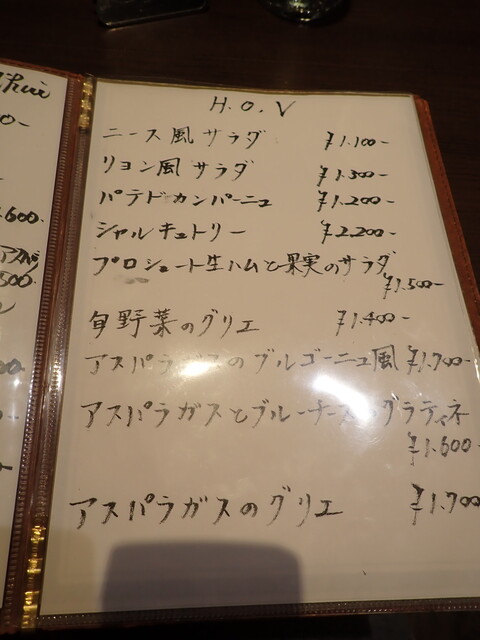 H.O.V
ニース風サラダ ¥1.100-
リヨン風サラダ ¥1.500-
パテドカンパーニュ ¥1.200-
シャルキュトリー ¥2.200-
プロシュート生ハムと果実のサラダ
¥1.500-
旬野菜のグリエ ¥1.400-
アスパラガスのブルゴーニュ風 ¥1.700-
アスパラガスとブルーチーズのグラティネ
¥1.600-
アスパラガスのグリエ ¥1.700
600-
500-